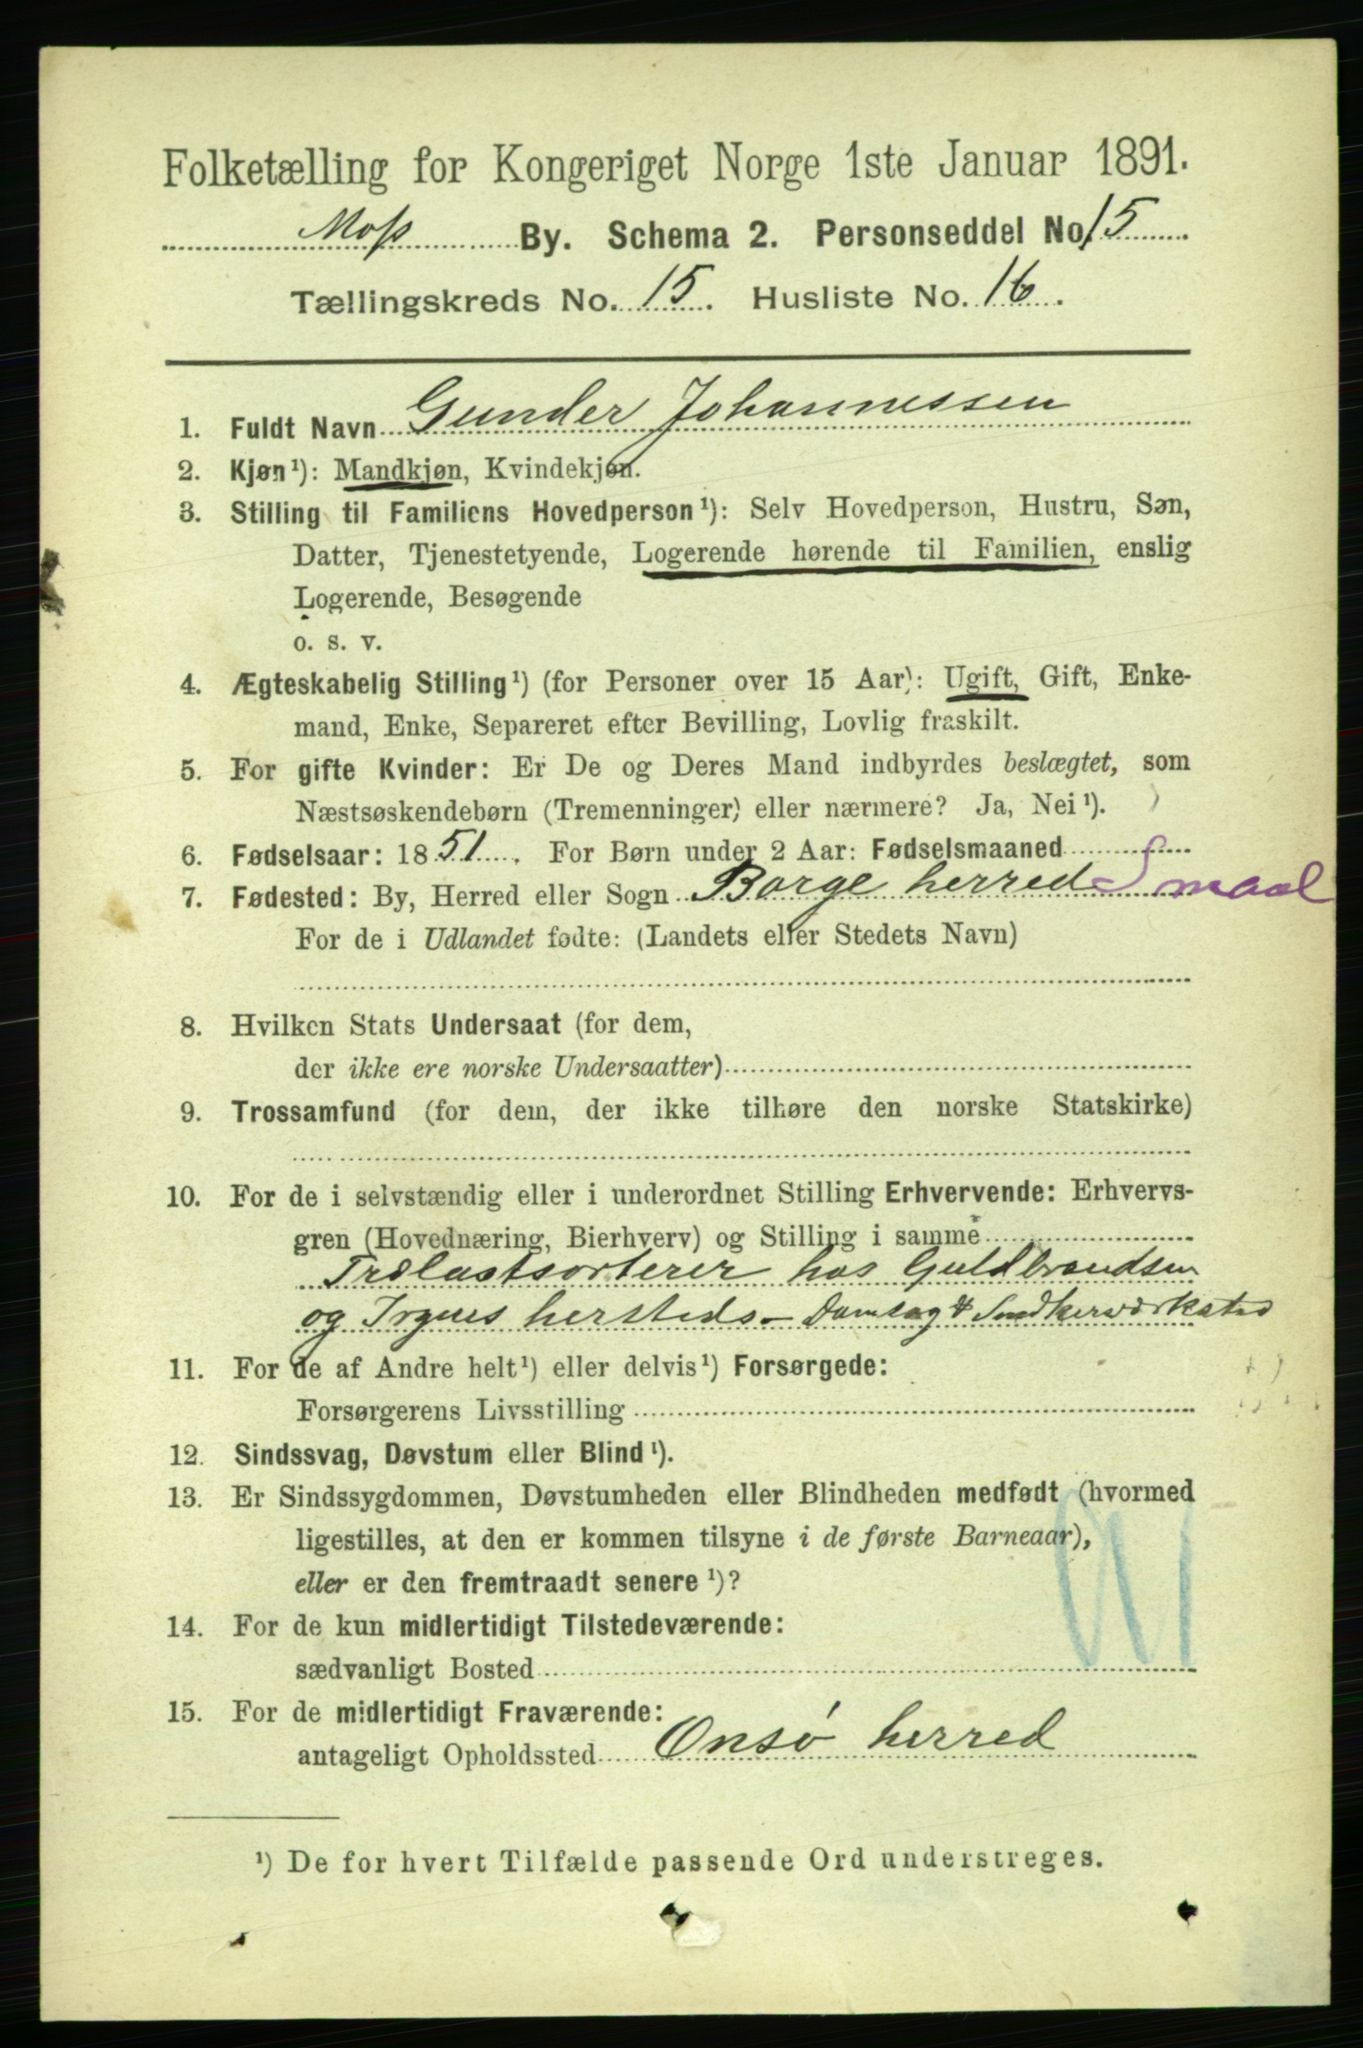 Folketælling for Kongeriget Norge 1ste Januar 1891.
Moss By. Schema 2. Personseddel No 15
Tællingskreds No. 15. Husliste No. 16.
1. Fuldt Navn Gunder Johannessen
2. Kjøn¹): Mandkjøn, Kvindekjøn.
3. Stilling til Familiens Hovedperson¹): Selv Hovedperson, Hustru, Søn,
Datter, Tjenestetyende, Logerende hørende til Familien, enslig
Logerende, Besøgende
o. s. v.
4. Ægteskabelig Stilling¹) (for Personer over 15 Aar): Ugift, Gift, Enke-
mand, Enke, Separeret efter Bevilling, Lovlig fraskilt.
5. For gifte Kvinder: Er De og Deres Mand indbyrdes beslægtet, som
Næstsøskendebørn (Tremenninger) eller nærmere? Ja, Nei¹).
6. Fødselsaar: 1851. For Børn under 2 Aar: Fødselsmaaned
7. Fødested: By, Herred eller Sogn Borge herred Smaal
For de i Udlandet fødte: (Landets eller Stedets Navn)
8. Hvilken Stats Undersaat (for dem,
der ikke ere norske Undersaatter)
9. Trossamfund (for dem, der ikke tilhøre den norske Statskirke)
10. For de i selvstændig eller i underordnet Stilling Erhvervende: Erhvervs-
gren (Hovednæring, Bierhverv) og Stilling i samme
Trælastsorterer hos Guldbrandsen
og hersteds - Damsag & Snedkerværksted
11. For de af Andre helt¹) eller delvis¹) Forsørgede:
Forsørgerens Livsstilling
12. Sindssvag, Døvstum eller Blind¹).
13. Er Sindssygdommen, Døvstumheden eller Blindheden medfødt (hvormed
ligestilles, at den er kommen tilsyne i de første Barneaar),
eller er den fremtraadt senere¹)?
14. For de kun midlertidigt Tilstedeværende:
sædvanligt Bosted
15. For de midlertidigt Fraværende:
antageligt Opholdssted Onsø herred
¹) De for hvert Tilfælde passende Ord understreges.